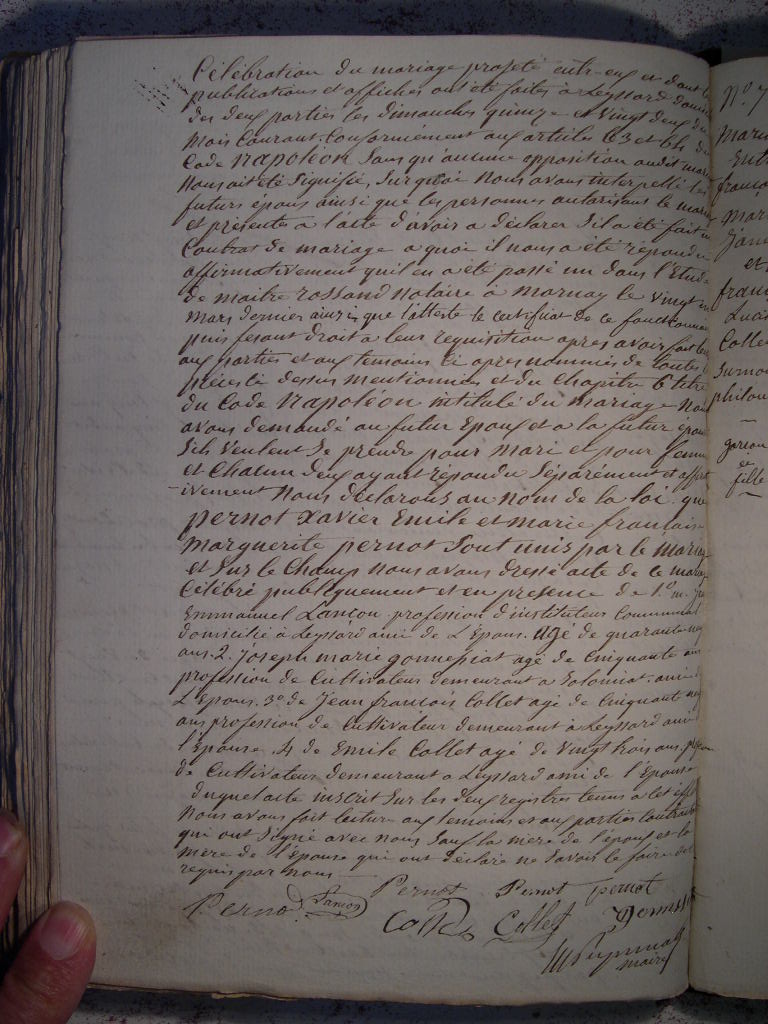 Célébration du mariage projeté entr-eux et dont les
publications et affiches ont été faites à Leyssard domicile
des deux parties les dimanches quinze et vingt deux du
mois courant. Conformément aux articles 63 et 64 du
Code napoléon sans qu'aucune opposition audit mariage
nous ait été signifié, sur quoi nous avons interpellé les
futurs époux ainsi que les personnes autorisant le mariage
et présentes à l'acte d'avoir à déclarer s'il a été fait un
Contrat de mariage a quoi il nous a été répondu
affirmativement qu'il en a été passé un dans l'Etude
de maitre rossand notaire à mornay le vingt
mars dernier ainsi que l'atteste le certificat de ce fonctionnaire
puis fesant droit à leur requisition apres avoir fait lecture
aux parties et aux temoins ci apres nommés de toutes les
pièces ci dessus mentionnées et du Chapitre 6 titre
du Code napoléon intitulé du mariage nous
avons demandé au futur Epoux et a la future épouse
s'ils veulent se prendre pour mari et pour femme
et chacun deux ayant répondu séparément et affirmat
ivement nous déclarons au nom de la loi que
pernot Xavier Emile et marie françoise
marguerite pernot sont unis par le mariage
et sur le Champ nous avons dressé acte de ce mariage
Célébré publiquement et en présence de 1.º m.
Emmanuel Lançon profession d'instituteur Communal
domicilié à Leyssard ami de L'Epoux. agé de quarante neuf
ans. 2. joseph marie gonnessiat agé de Cinquante ans
profession de Cultivateur demeurant à Solomiat. ami de
L'Epoux. 3º de Jean françois Collet agé de Cinquante neuf
ans profession de Cultivateur demeurant à Leyssard ami de
l'Epouse. 4 de Emile Collet agé de vingt trois ans.
de Cultivateur demeurant a Leyssard ami de l'épouse
duquel acte inscrit sur les deux registres tenus a cet effet
Nous avons fait lecture aux temoins et aux parties contractantes
qui ont signé avec nous sauf la mère de l'époux et la
mère de l'Epouse qui ont déclaré ne savoir le faire de ce
requis par nous
Pernot Lancon Pernot Pernot pernot
Collet Collet Gonessiat
maire
N.º 7
Maria
Entre
françoi
Mari
et
fran
Colle
Surno
philou
garçon
et
fille